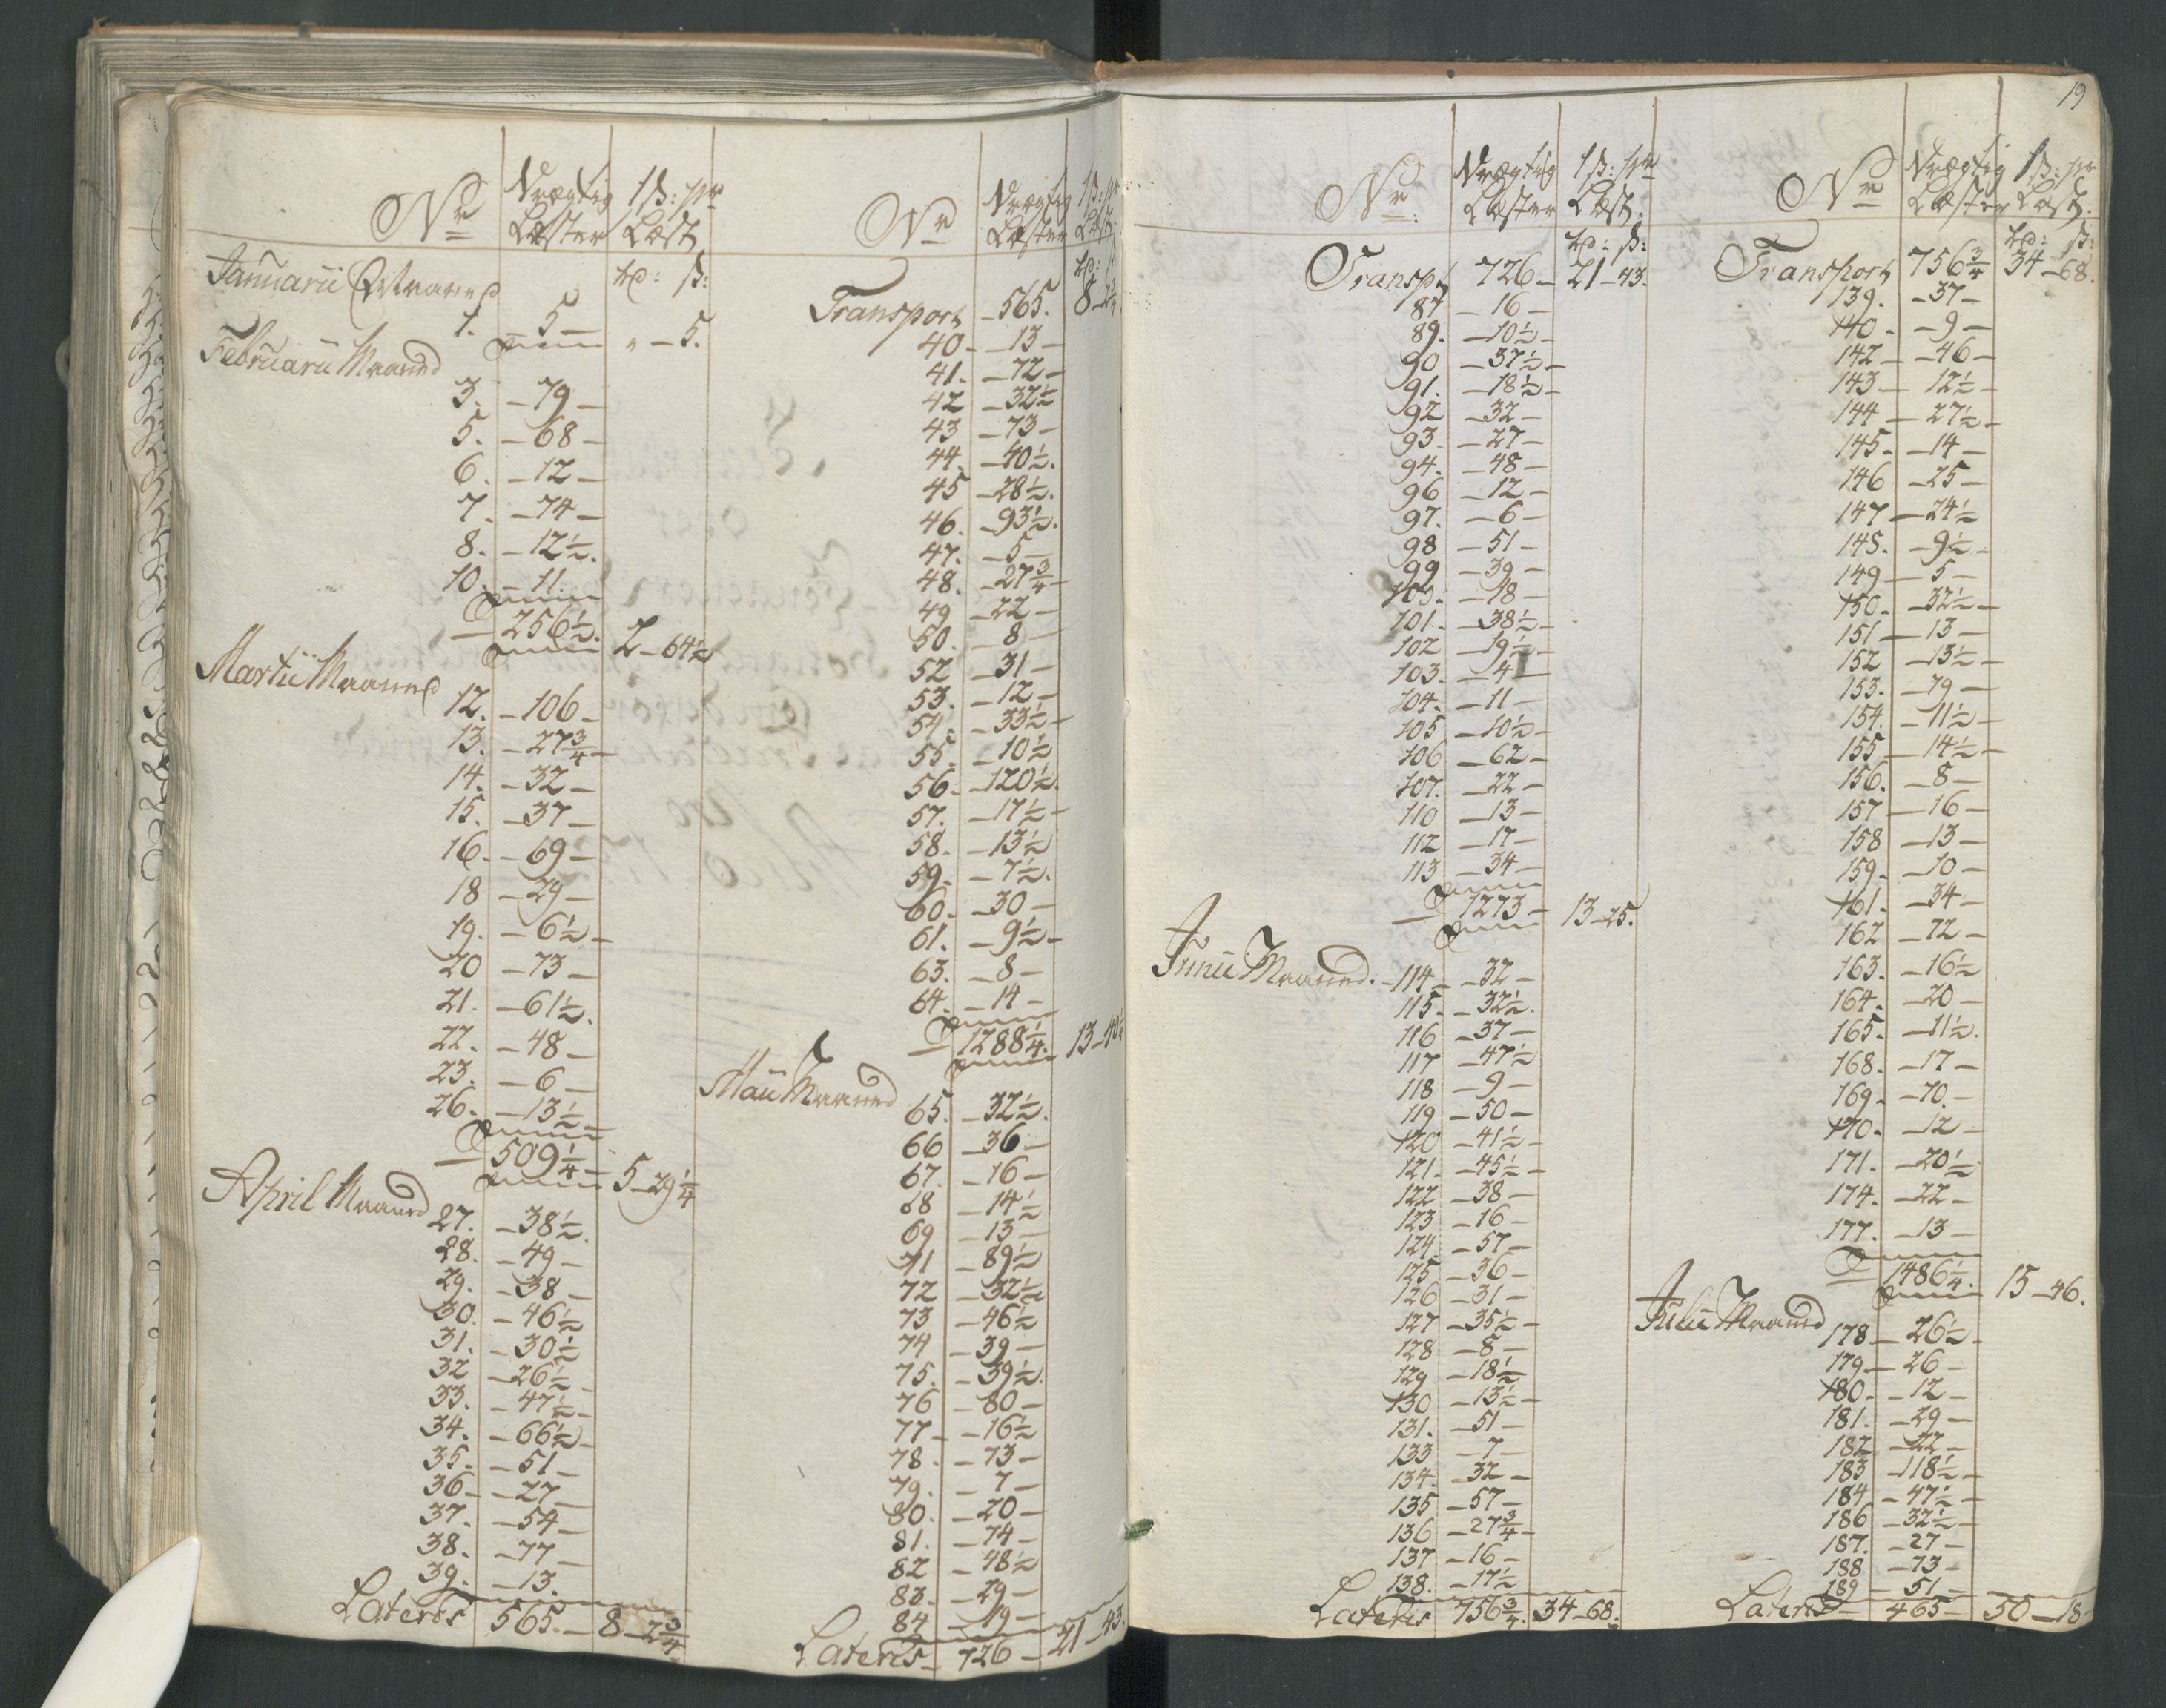 Nr Drægtig Læster 1 ß: pr Læst
rd: ß:
Januarii Qvitanced
1. – 5 – " – 5.
Februarii Maaned
3. – 79 –
5. – 68 –
6. – 12 –
7. – 74 –
8. – 12½.
10. – 11.
256½. 2 – 64½
Martii Maaned
12. – 106 –
13. – 27¾ –
14. – 32 –
15. – 37 –
16. – 69 –
18 – 29 –
19. – 6½ –
20 – 73 –
21. – 61½.
22. – 48 –
23. – 6 –
26. – 13½ –
509¼ – 5 – 29¼
April Maaned
27. – 38½.
28. – 49 –
29. – 38 –
30. – 46½
31. – 30½
32 – 26½ –
33. – 47½ –
34. – 66½ –
35. – 51 –
36 – 27 –
37. – 54 –
38. – 77 –
39. – 13.
Lateris 565. – 8 – 2¾

Nr Drægtig Læster 1 ß: pr Læst
rd:
Transport – 565. 8 – 2¾
40. – 13 –
41. – 72 –
42 – 32½
43 – 73 –
44. – 40½.
45 – 28½.
46. – 93½.
47. – 5 –
48. – 27¾ –
49 – 22 –
50. – 8 –
52 – 31 –
53. – 12 –
54. – 33½ –
55. – 10½
56. – 120½.
57. – 17½ –
58. – 13½
59. – 7½.
60. – 30 –
61. – 9½ –
63. – 8 –
64. – 14 –
1288¼. 13 – 40¼
Maii Maaned
65. – 32½.
66 – 36 –
67. – 16 –
68 – 14½
69 – 13 –
71 – 89½
72 – 32½
73 – 46½
74 – 39 –
75. – 39½.
76 – 80 –
77 – – 16½
78. – 73 –
79. – 7 –
80. – 20 –
81. – 74 –
82 – 48½
83. – 29 –
84 – 19 –
Lateris – 726 – 21 – 43.

Nr: Drægtig Læster 1 ß: pr Læst.
rd: ß:
Transpt 726 – 21 – 43.
87 – 16 –
89. – 10½ –
90 – 37½ –
91. – 18½ –
92 – 32 –
93. – 27 –
94. – 48 –
96 – 12 –
97. – 6 –
98 – 51 –
99 – 39 –
100. – 18 –
101. – 38½ –
102 – 19½ –
103. – 4 –
104. – 11 –
105 – 10½ –
106 – 62 –
107. – 22 –
110 – 13 –
112 – 17 –
113 – 34 –
1273 – 13 – 25.
Junii Maaned. – 114 – 32 –
115. – 32½.
116 – 37 –
117 – 47½
118 – 9 –
119 – 50 –
120 – 41½ –
121. – 45½ –
122 – 38 –
123 – 16 –
124. – 57 –
125 – 36 –
126 – 31 –
127 – 35½ –
128 – 8 –
129 – 18½
130 – 13½ –
131. – 51 –
133 – 7 –
134. – 32 –
135 – 57 –
136 – 27¾ –
137 – 16 –
138. – 17½
Lateris 756¾. 34 – 68.

19
Nr Drægtig Læster 1 ß: pr Læst.
rd: ß:
Transport 756¾ 34 – 68.
139. – 37 –
140. – 9 –
142 – – 46 –
143 – 12½ –
144 – 27½ –
145. – 14 –
146 – 25 –
147 – 24½
148. – 9½ –
149 – 5 –
150. – 32½ –
151 – 13 –
152 – 13½ –
153. – 79 –
154. – 11½ –
155 – 14½ –
156. – 8 –
157 – 16 –
158 – 13 –
159. – 10 –
161. – 34 –
162 – 72 –
163. – 16½
164. – 20 –
165. – 11½.
168. – 17 –
169. – 70. –
170. – 12 –
171. – 20½
174. – 22 –
177. – 13 –
1486¼. 15 – 46.
Julii Maaned
178 – 26½ –
179 – 26 –
180. – 12 –
181. – 29 –
182 – 22 –
183 – 118½ –
184 – 47½ –
186 – 32½ –
187. – 27 –
188 – 73 –
189 – 51 –
Lateris – 465 – 50 – 18 –